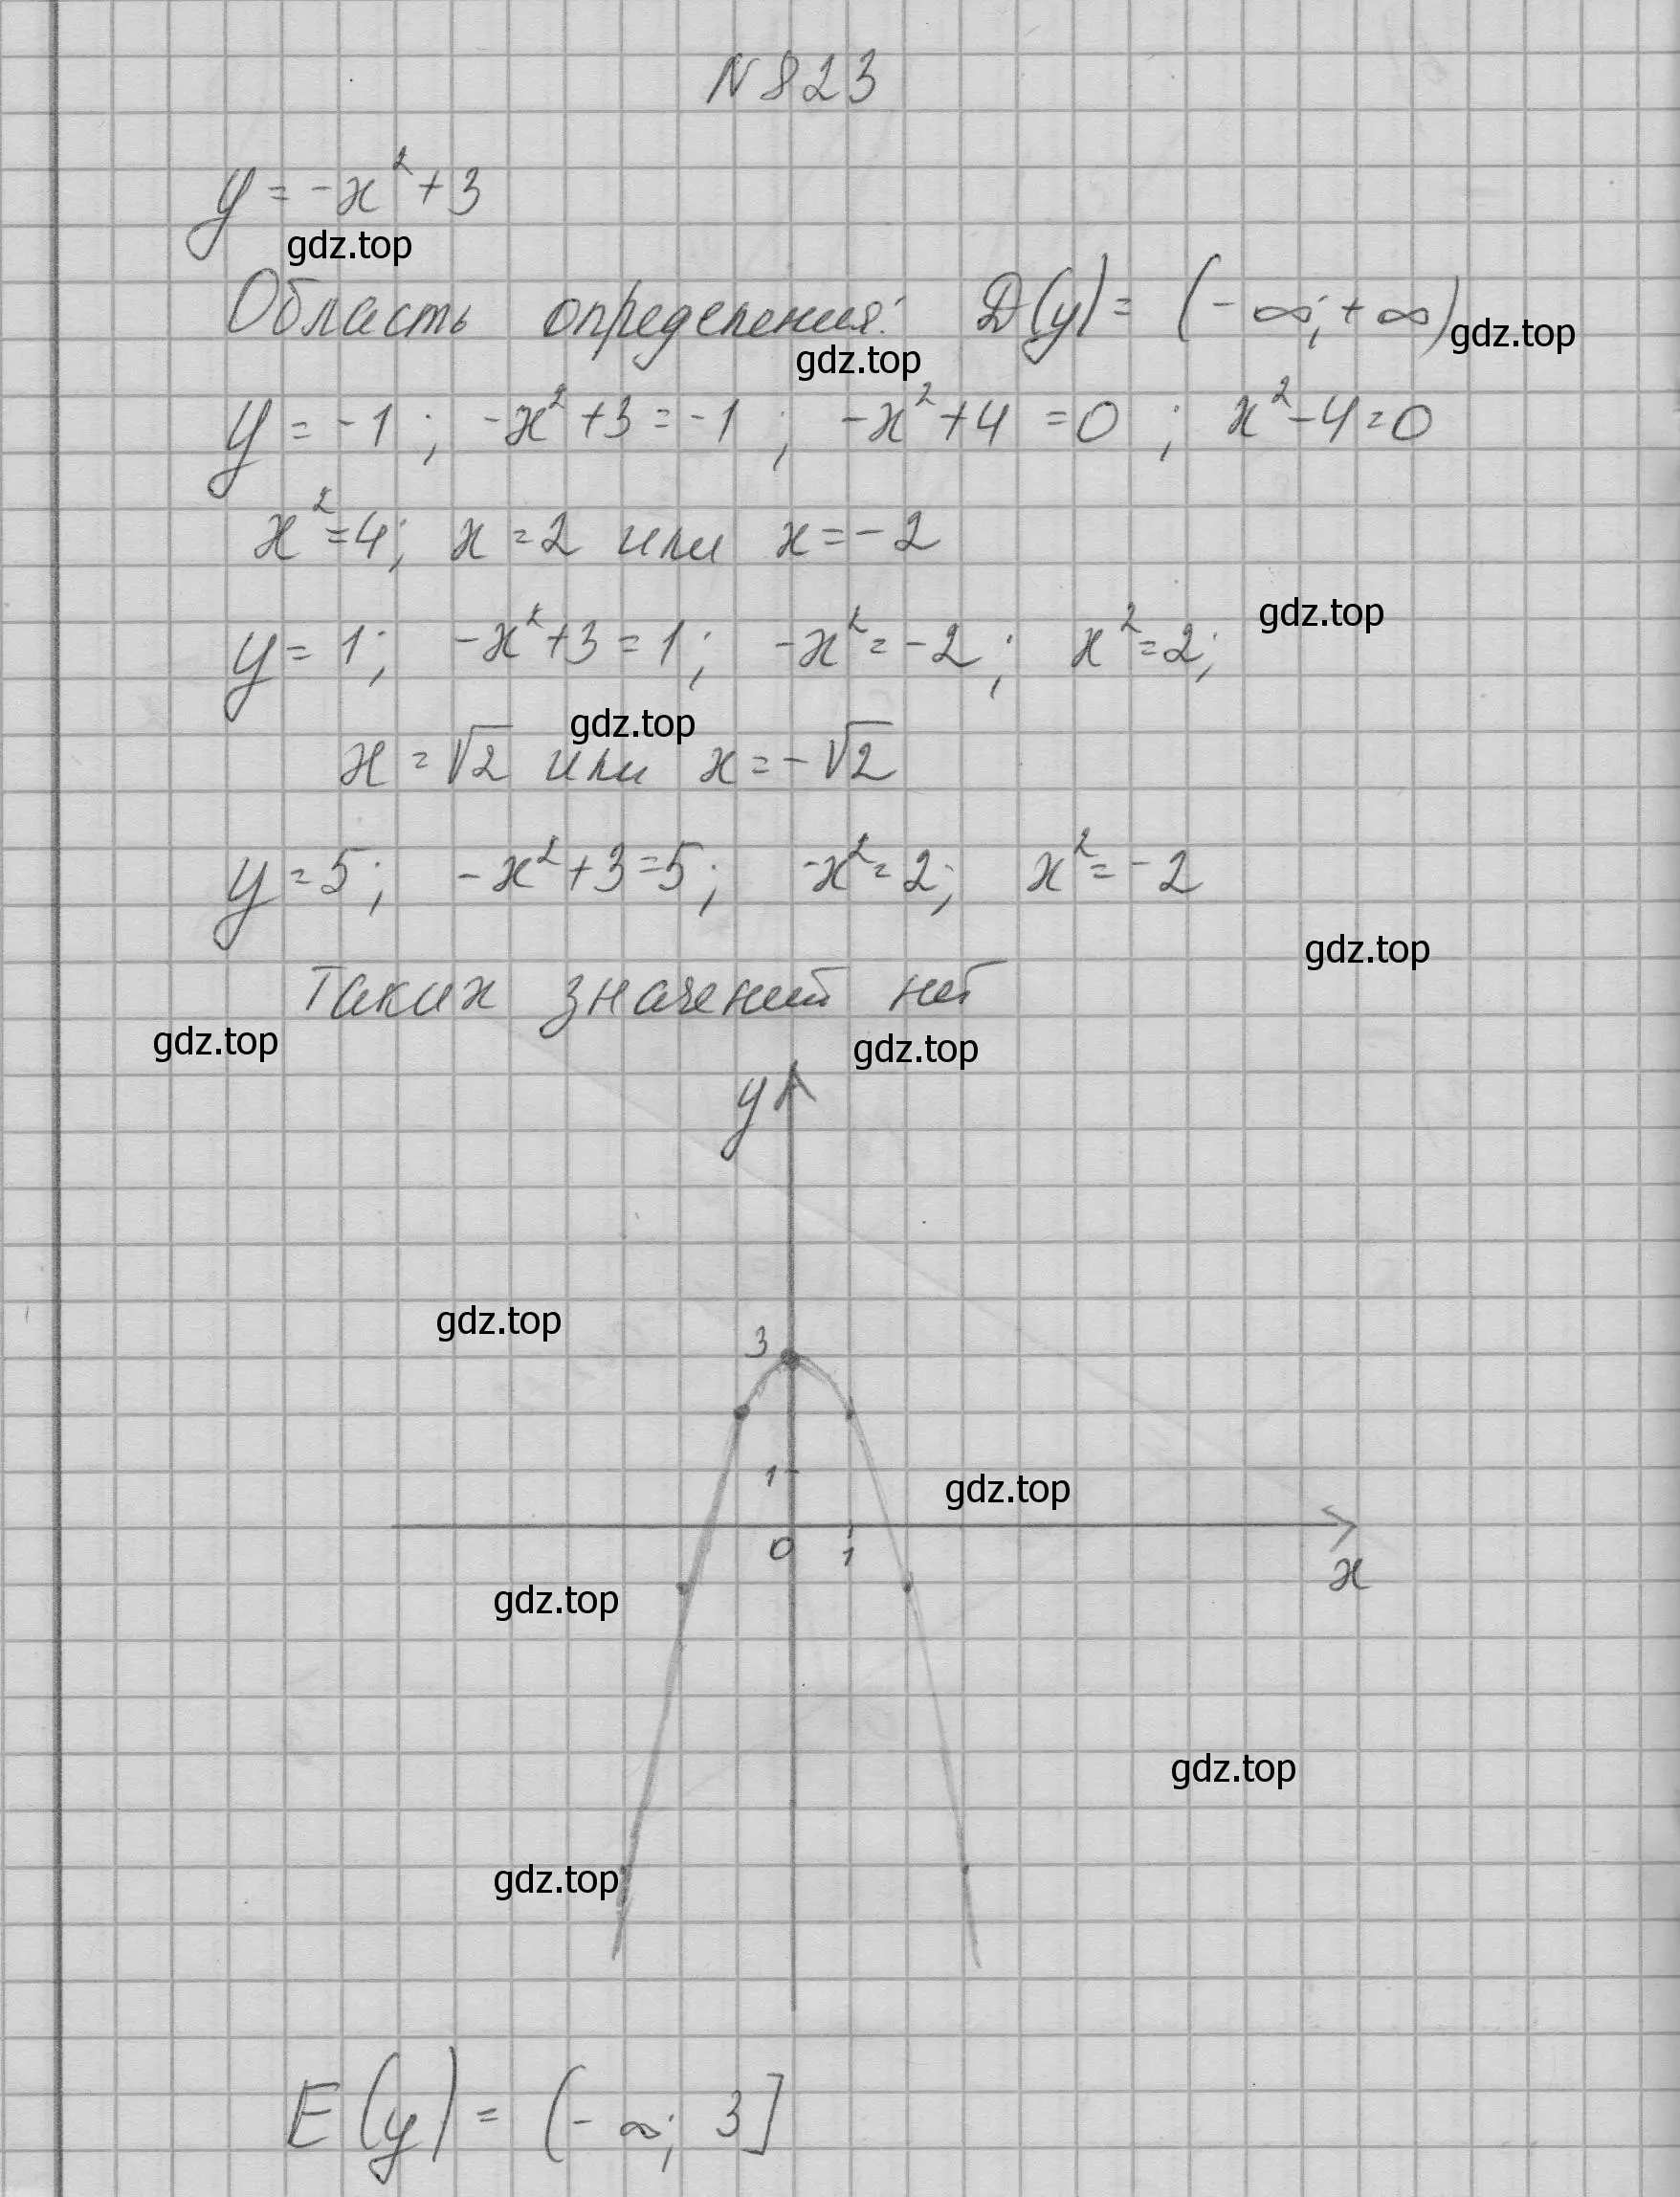 N 823
y = -x² + 3
gdz.top
Область определения: D(y) = (-∞; +∞)
gdz.top
gdz.top
y = -1; -x² + 3 = -1; -x² + 4 = 0; x² - 4 = 0
x² = 4; x = 2 или x = -2
gdz.top
y = 1; -x² + 3 = 1; -x² = -2; x² = 2;
gdz.top
x = √2 или x = -√2
y = 5; -x² + 3 = 5; -x² = 2; x² = -2
gdz.top
Таких значений нет
gdz.top
gdz.top
y
gdz.top
3
1
gdz.top
0 1
x
gdz.top
gdz.top
gdz.top
E(y) = (-∞; 3]